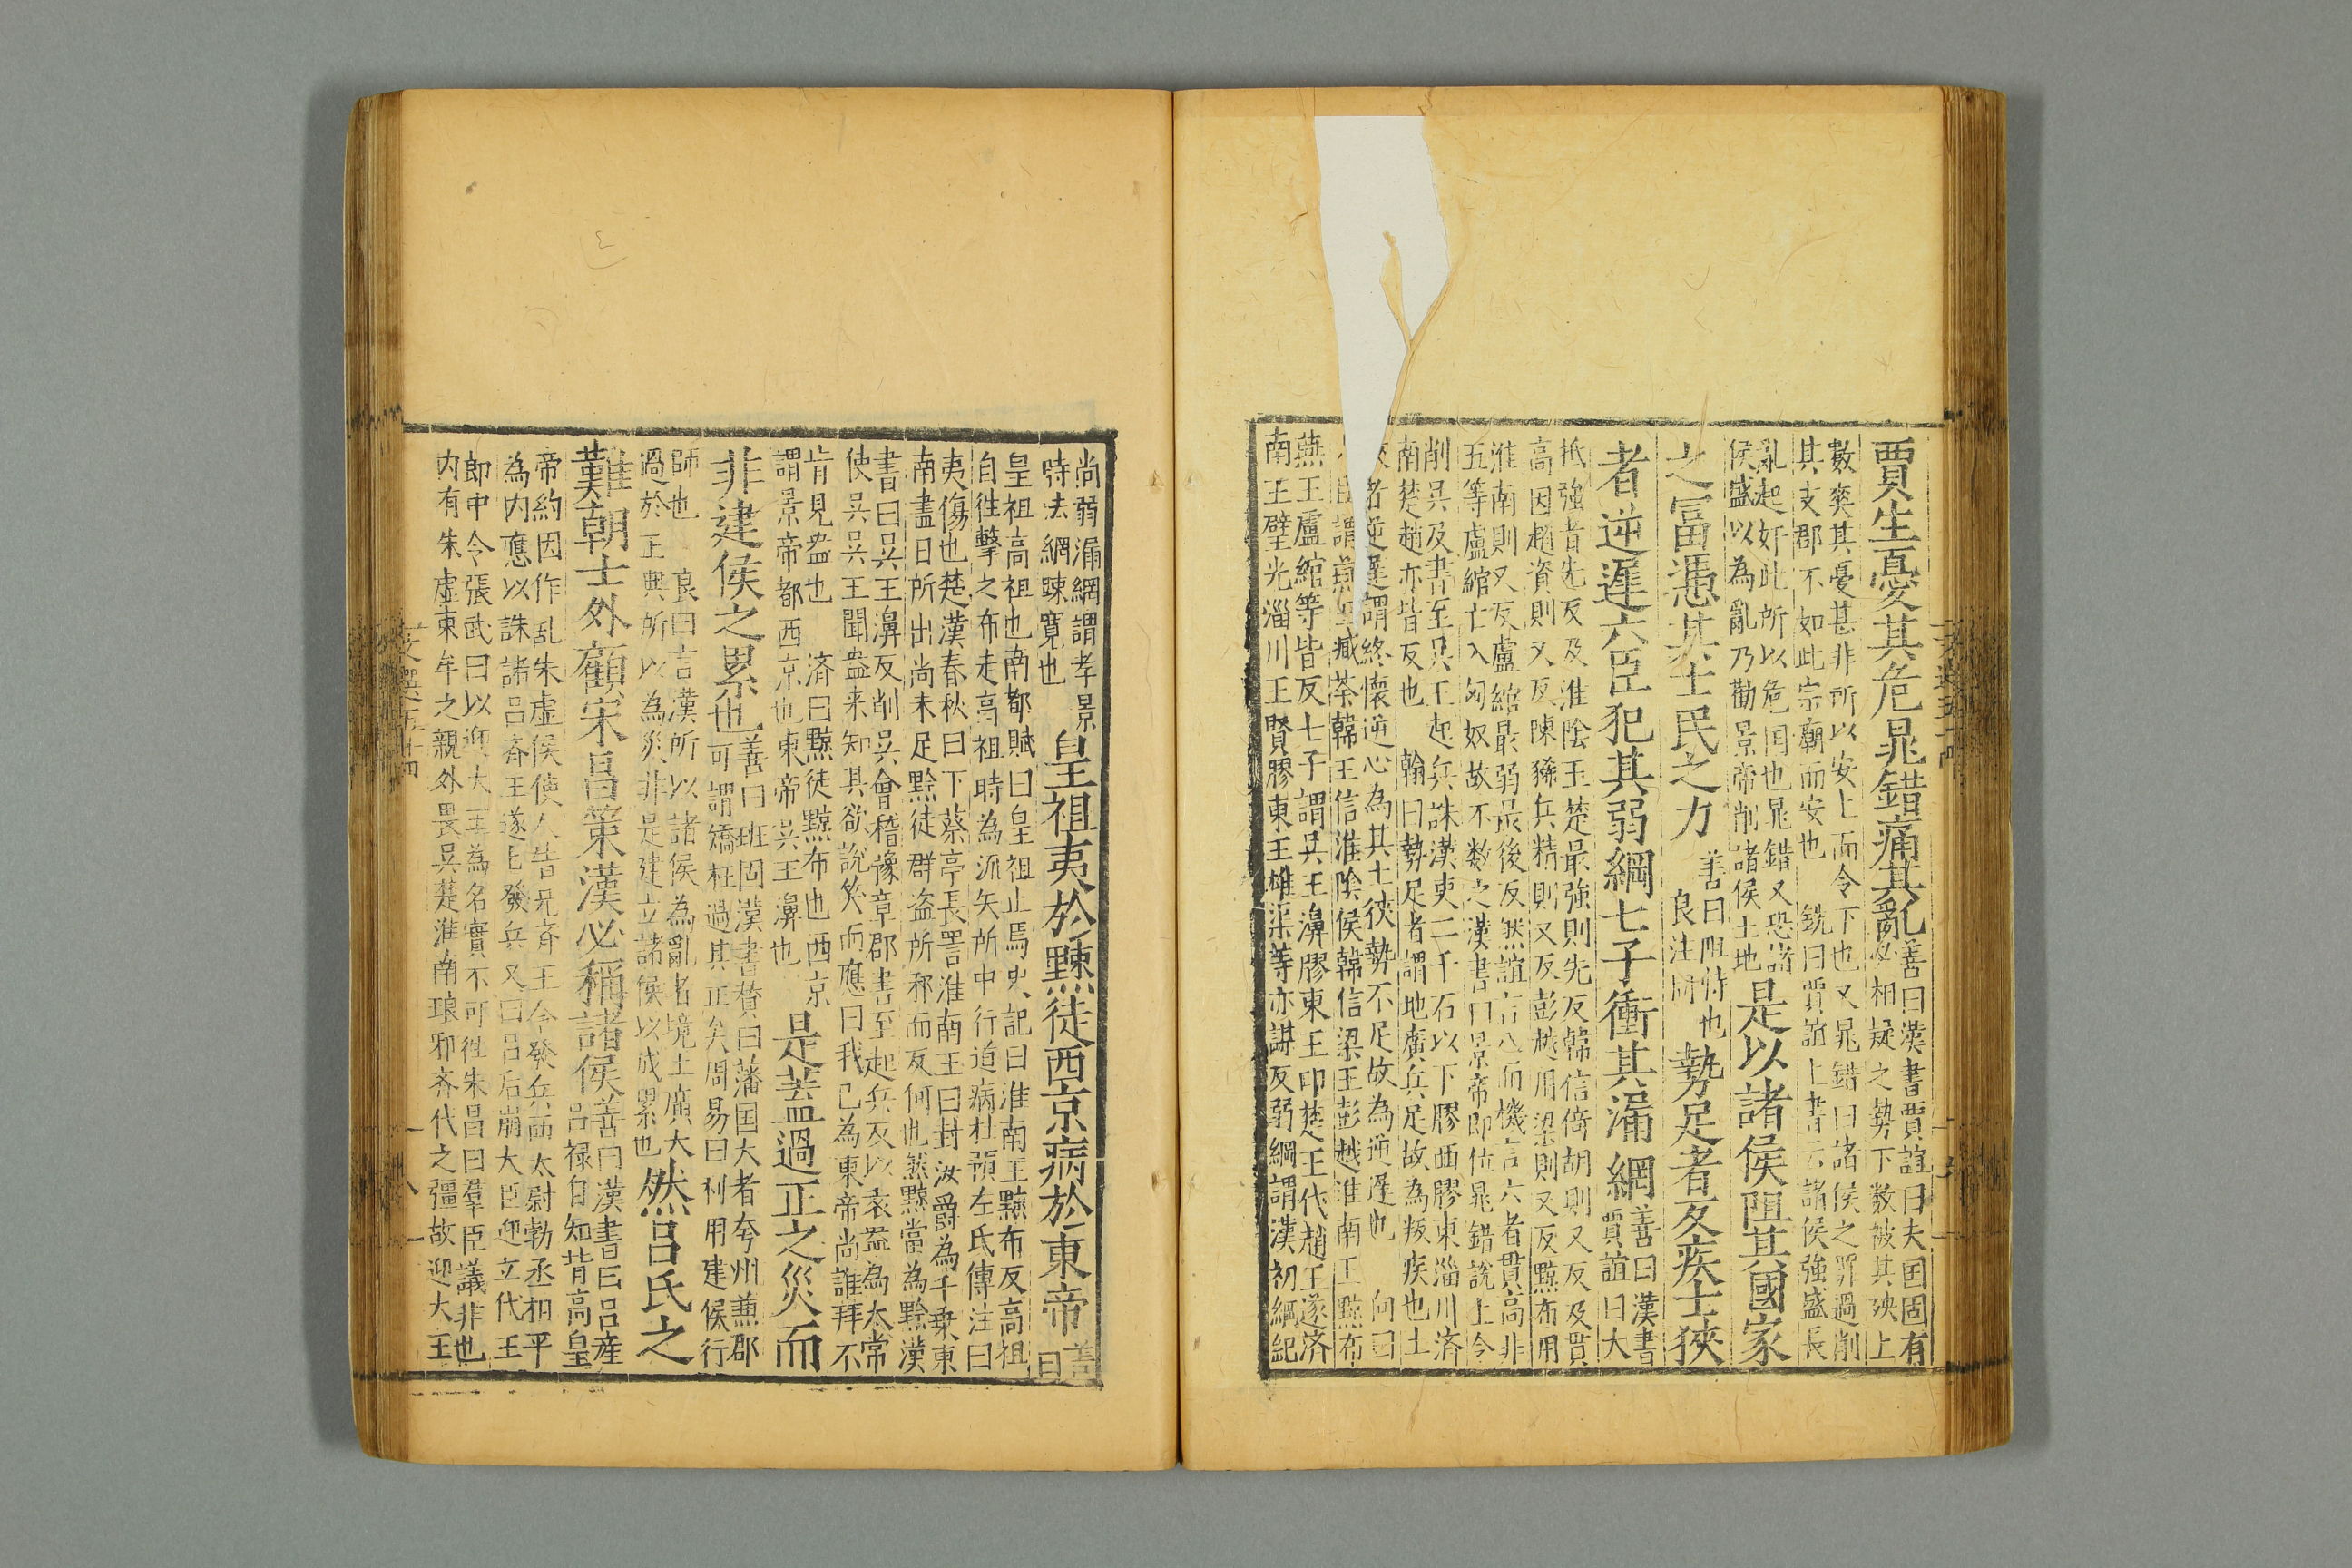 賈生憂其危晁錯痛其亂
善曰漢書賈誼曰夫囯固有
必相疑之勢下数被其殃上
數爽其憂甚非所以安上而令下也又晁錯曰諸侯之罪過削
其支郡不如此宗廟而安也 銑曰賈誼上書云諸侯強盛長
亂起奸此所以危囯也晁錯又恐諸
侯盛以為亂乃勸景帝削諸侯土地
是以諸侯阻其國家
之冨憑其士民之力
善曰阻恃也
良注同
勢足者反疾士狹
者逆遲六臣犯其弱綱七子衝其漏網
善曰漢書
賈誼曰大
抵強者先反及淮陰王楚最強則先反韓信倚胡則又反及貫
高因趙資則又反陳豨兵精則又反彭越用梁則又反黥布用
淮南則又反盧綰最弱最後反然誼言八而機言六者貫高非
五等盧綰亡入匈奴故不数之漢書曰景帝即位晁錯說上令
削吳及書至吳王起兵誅漢吏二千石以下膠西膠東淄川济
南楚趙亦皆反也 翰曰勢足者謂地廣兵足故為叛疾也土
者逆遲謂終懷逆心為其土狹勢不足故為逆遲也 向曰
臣謂燕王臧荼韓王信淮陰侯韓信梁王彭越淮南王黥布
燕王盧綰等皆反七子謂吳王濞膠東王印楚王代趙王遂济
南王壁光淄川王賢膠東王雄渠等亦謀反弱綱謂漢初綱紀
尚弱漏網謂孝景
時法網踈寛也
皇祖夷於黥徒西京病於東帝
善
曰
皇祖高祖也南都賦曰皇祖止焉史記曰淮南王黥布反高祖
自往擊之布走高祖時為流矢所中行道病杜預左氏傳注曰
夷傷也楚漢春秋曰下蔡亭長詈淮南王曰封汝爵為千乗東
南盡日所出尚未足黥徒群盗所邪而反何也然黥當為黔漢
書曰吳王濞反削吳會稽豫章郡書至起兵反以袁盎為太常
使吳吳王聞盎来知其欲說笑而應曰我已為東帝尚誰拜不
肯見盎也 济曰黥徒黥布也西京
謂景帝都西京也東帝吳王濞也
是蓋過正之災而
非建侯之累也
善曰班固漢書賛曰藩囯大者夸州兼郡
可謂矯枉過其正矣周易曰利用建侯行
師也 良曰言漢所以諸侯為亂者境土廣大
過於正典所以為災非是建立諸侯以成累也
然呂氏之
難朝士外顧宋昌策漢必稱諸侯
善曰漢書曰呂産
呂禄自知背高皇
帝約因作乱朱虚侯使人告兄斉王令發兵西太尉勃丞相平
為内應以誅諸呂斉王遂乜發兵又曰呂后崩大臣迎立代王
郎中令張武曰以迎大王為名實不可往朱昌曰羣臣議非也
内有朱虚東牟之親外畏吳楚淮南琅邪斉代之彊故迎大王